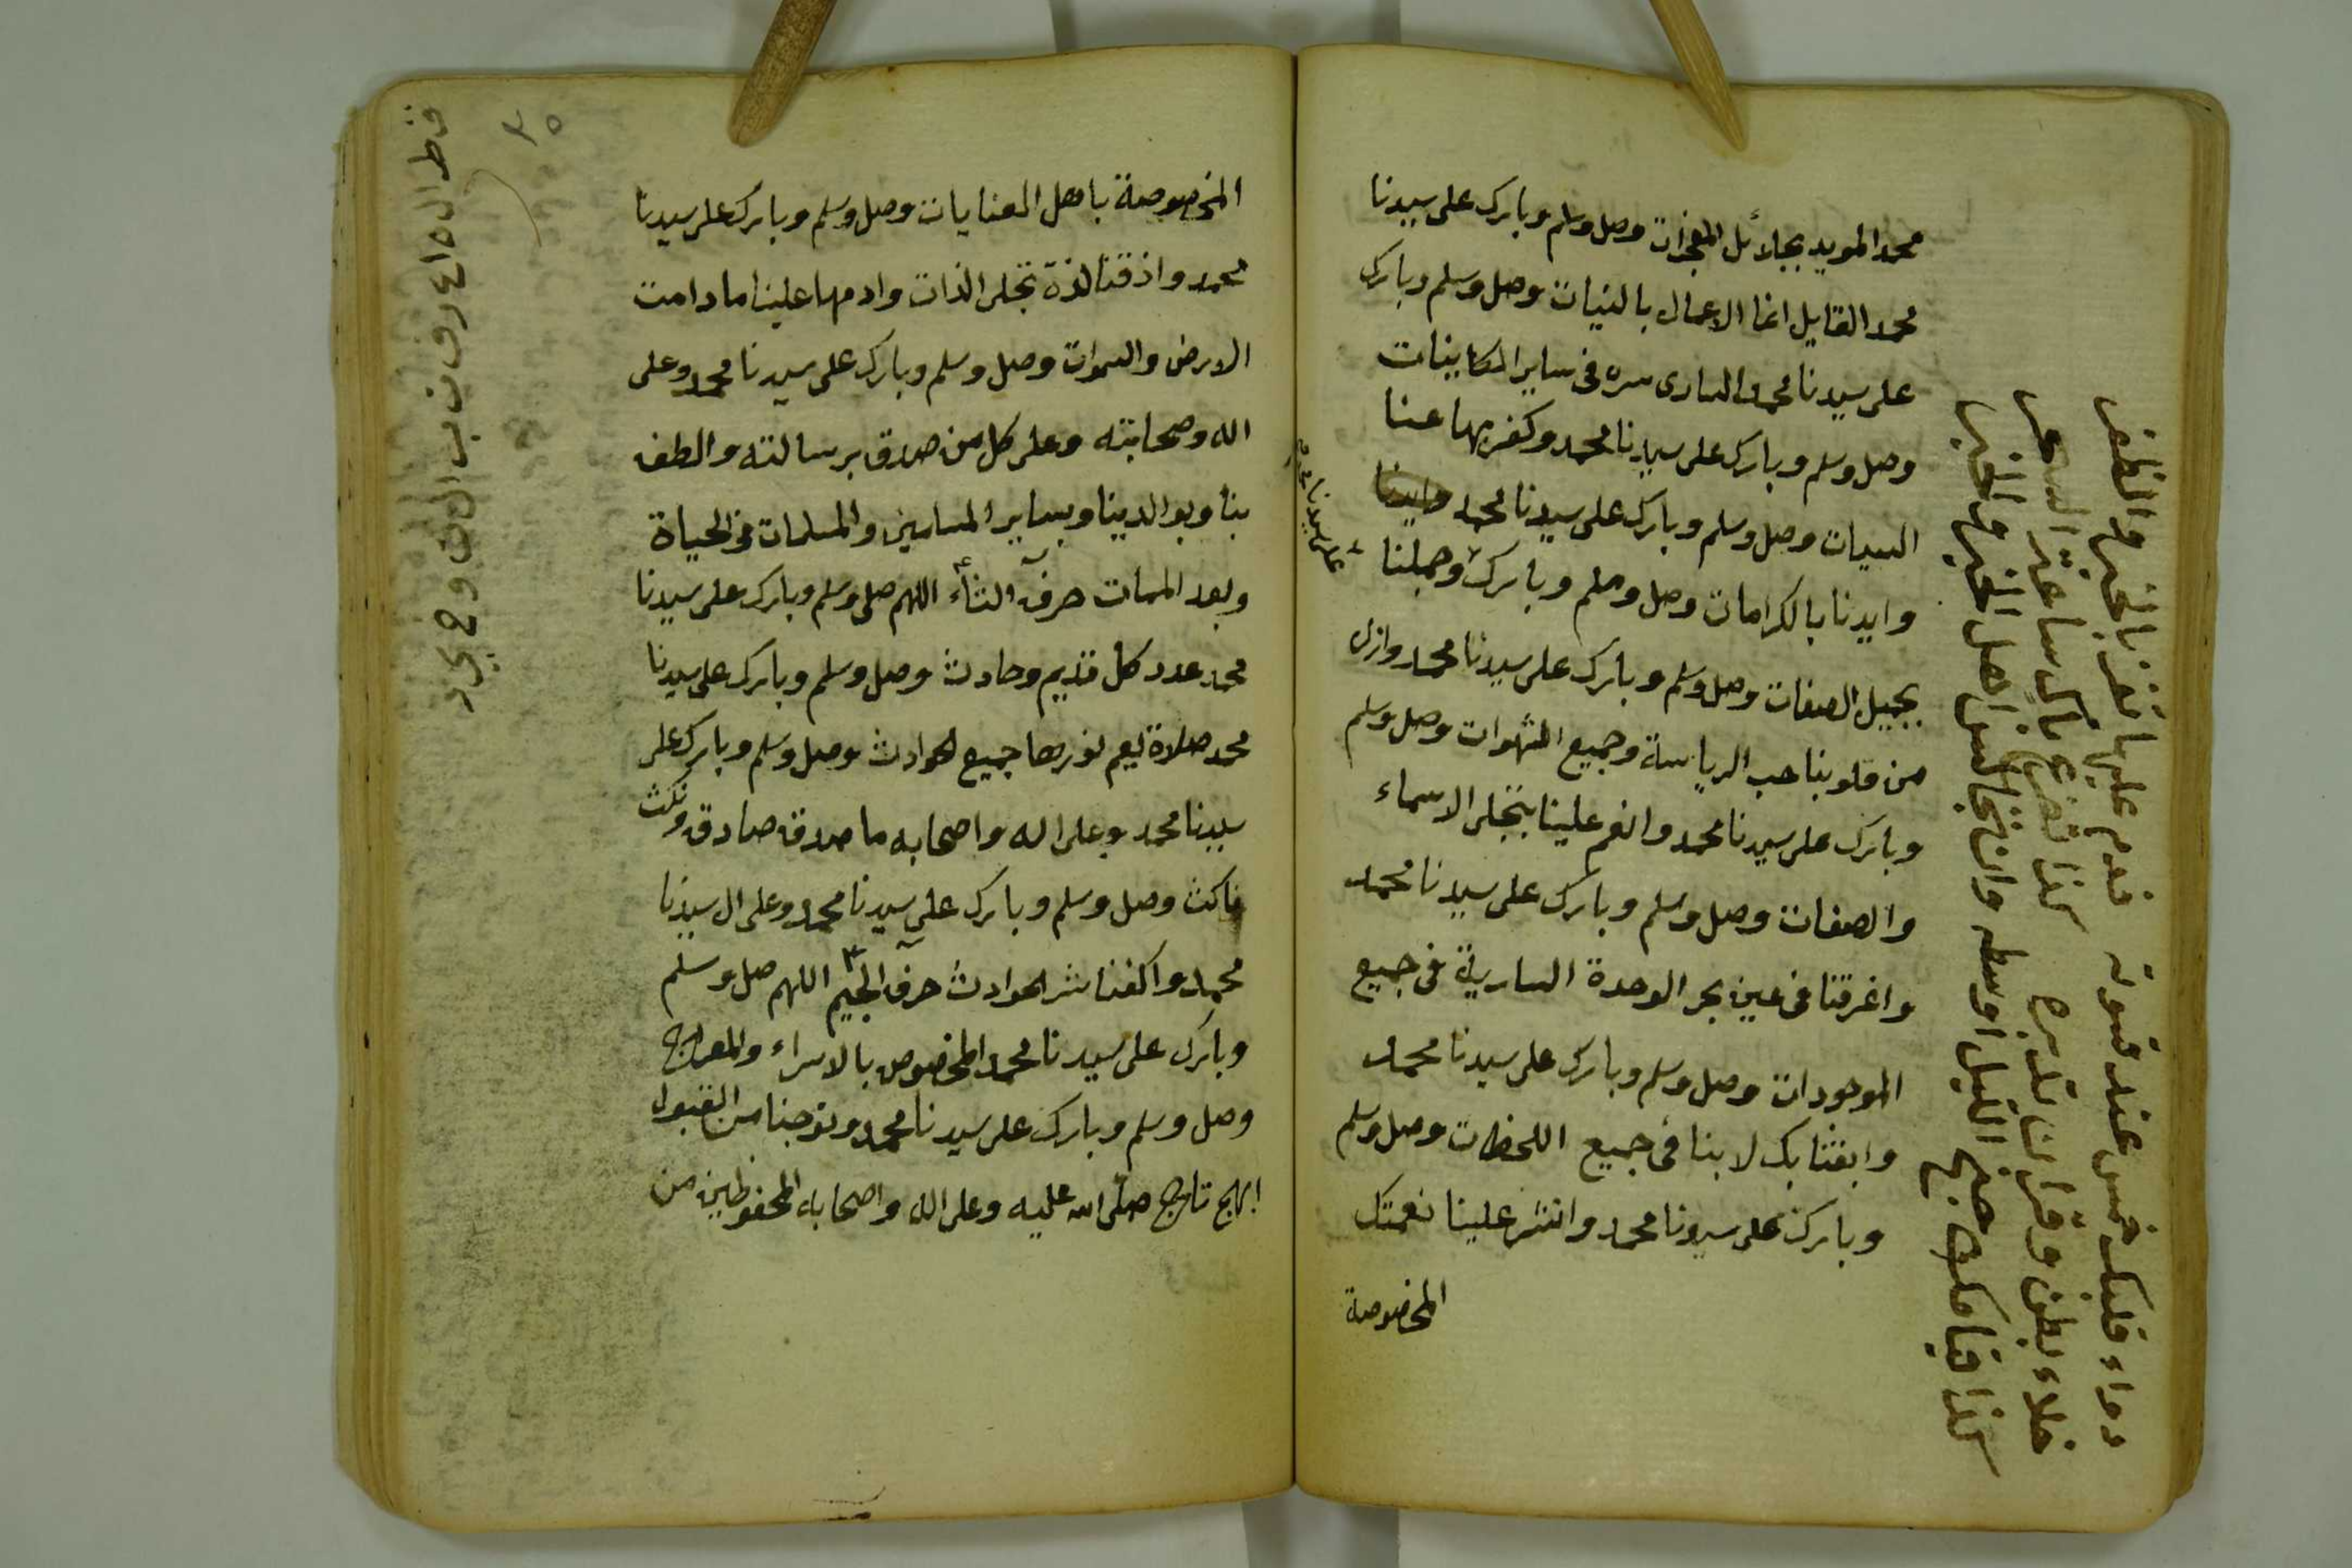 محمد المويد بجلائل المعجزات وصل وسلم وبارك على سيدنا
محمد القايل انما الاعمال بالنيات وصل وسلم وبارك
على سيدنا محمد السارى سره فى ساير الكاينات
وصل وسلم وبارك على سيدنا محمد وكفر بها عنا
السيات وصل وسلم وبارك على سيدنا محمد
وايدنا بالكرامات وصل وسلم وبارك وجملنا
على سيدنا محمد
بجميل الصفات وصل وسلم وبارك على سيدنا محمد وازل
من قلوبنا حب الرياسة وجميع الشهوات وصل وسلم
وبارك على سيدنا محمد وانعم علينا بتجلى الاسماء
والصفات وصل وسلم وبارك على سيدنا محمد
واغرقنا فى عين بحر الوحدة السارية فى جميع
الموجودات وصل وسلم وبارك على سيدنا محمد
وابقنا بك لا بنا فى جميع اللحظات وصل وسلم
وبارك على سيدنا محمد وانشر علينا نعمتك
المخصوصة
دواء قلبك خمس عند قسوته فدم عليها تفز بالخير والظفر
خلاء بطن وقران تدبره كذا تضرع باك ساعة السحر
كذا قيامك جنح الليل اوسطه وان تجالس اهل الخير والخبر
المخصوصة باهل العنايات وصل وسلم وبارك على سيدنا
محمد واذقنا لذة تجلى الذات وادمها علينا ما دامت
الارض والسموات وصل وسلم وبارك على سيدنا محمد وعلى
اله وصحابته وعلى كل من صدق برسالته والطف
بنا وبوالدينا وبساير المسلمين والمسلمات فى الحياة
وبعد الممات حرف الثاء اللهم صلى وسلم وبارك على سيدنا
محمد عدد كل قديم وحادث وصل وسلم وبارك على سيدنا
محمد صلاة يعم نورها جميع الحوادث وصل وسلم وبارك على
سيدنا محمد وعلى اله واصحابه ما صدق صادق ونكث
ناكث وصل وسلم وبارك على سيدنا محمد وعلى ال سيدنا
محمد واكفنا شر الحوادث حرف الجيم اللهم صل وسلم
وبارك على سيدنا محمد المخصوص بالاسراء والمعراج
وصل وسلم وبارك على سيدنا محمد وتوجنا من القبول
ابهج تاج صلى الله عليه وعلى اله واصحابه المحفوظين من